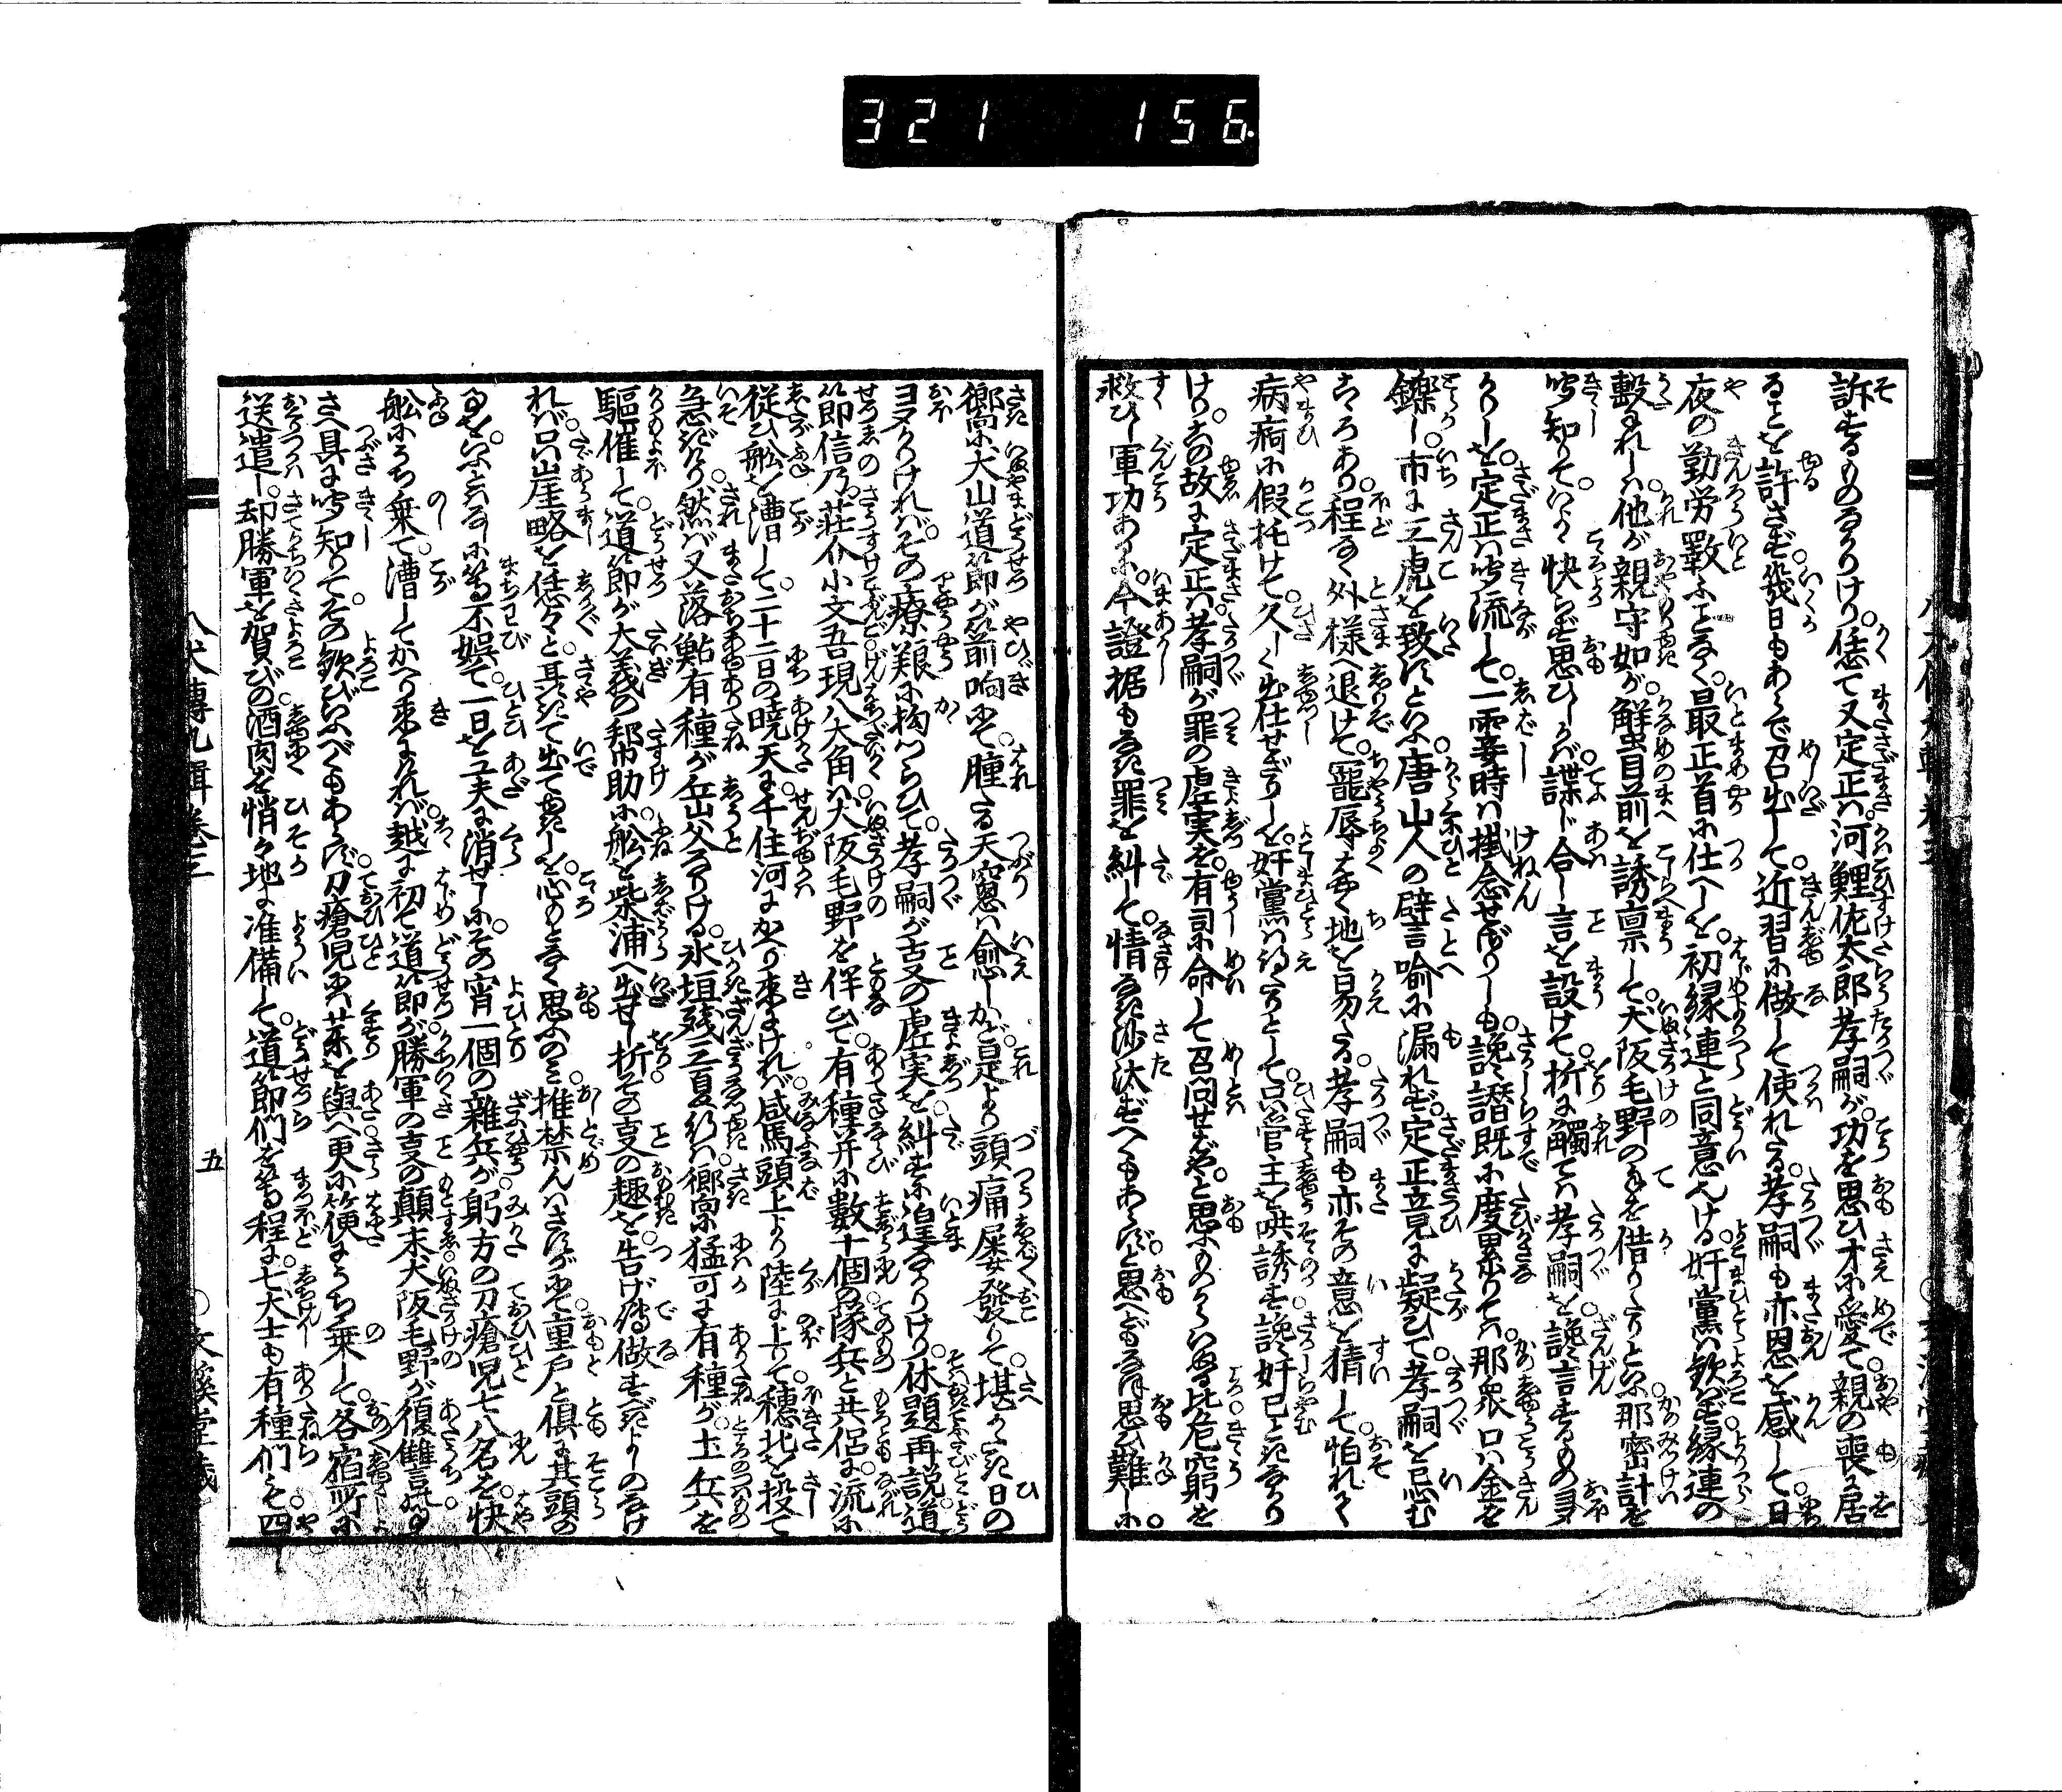 321 156.
訴するものなかりけり。恁て又定正ハ。河鯉佐太郎孝嗣が。功を思ひ才に愛て。親の喪に居
ることを許さず。幾日もあらで召出して。近習に做して使れたる。孝嗣も亦恩を感して。日
夜の勤労数ふことなく。最正首に仕へしを。初縁連と同意なりける。奸黨ハ歓ばず。縁連の
撃れしハ。他が親守如が。蟹目前を誘稟して。犬阪毛野の手を借りたりといふ。那密計を
聞知りて。いよゝ快らず思ひしかバ。諜じ合し言を設けて。折に觸てハ孝嗣を。讒言するもの多
かりしを。定正ハ聞流して。一霎時ハ掛念せざりしも。讒譖既に度累りてハ。那衆口ハ金を
鑠し。市に三虎を致すといふ。唐山人の譬言喩に漏れず。定正竟に疑ひて。孝嗣を忌む
こゝろあり。程なく外様へ退けて。寵辱たゞ地を易たる。孝嗣も亦その意を猜して。怕れて
病痾に假托けて。久しく出仕せざりしを。奸黨ハ得たりとして。只管主を哄誘す。讒奸已ときなかり
けり。この故に定正ハ。孝嗣が罪の虚実を。有司に命して召問せばやと。思ふものからいぬる比。危窮を
救ひし軍功あるに。今證据もなき罪を糾して。情なき沙汰すべくもあらずと思へども。なほ思ひ難しに。
嚮に犬山道節が。前响にて。腫たる天窓ハ愈しかど。是より頭痛屡發りて。堪がたき日の
多かりければ。その療艱に拘つらひて。孝嗣が言の虚実を。糾すに遑なかりけり。休題再説道
節即信乃。荘介小文吾現八大角ハ。犬阪毛野を伴ひて。有種并に数十個の。隊兵と共侶に。流に
従ひ舩を漕して。二十二日の暁天に。千住河にかへり来にければ。咸馬頭上より陸に上りて。穂北を投て
急ぎけり。然バ又落鮎有種が。岳父なりける。氷垣残三夏行ハ。嚮に猛可に有種が。土兵を
駆催して。道節が大義の邦助に。舩を柴浦へ出せし折。その事の趣を。告げ得做さずよしのなけ
れバ。只崖略を恁々と。耳語て出てゆきしを。心もとなく思ふのミ。推禁んハさすがにて。重戸と倶に其頭の
事をいふくなるに等不娯て。一日を工夫に消せしに。その宵一個の雑兵が。躬方の刀瘡児七八名を。快
舩にうち乗て。漕してかへり来にければ。越に初て道節が。勝軍の事の顛末。犬阪毛野が復讐言の事
さへ具に聞知りて。その歓びいふべくもあらず。刀瘡児にハ薬を與へ。更に筵にうち乗して。各宿所に
送遣し。却勝軍を賀びの酒肉を悄々地に准備して。道節們をまつ程に。七犬士も有種們も。四
八犬傳九輯巻三
五
文溪堂藏